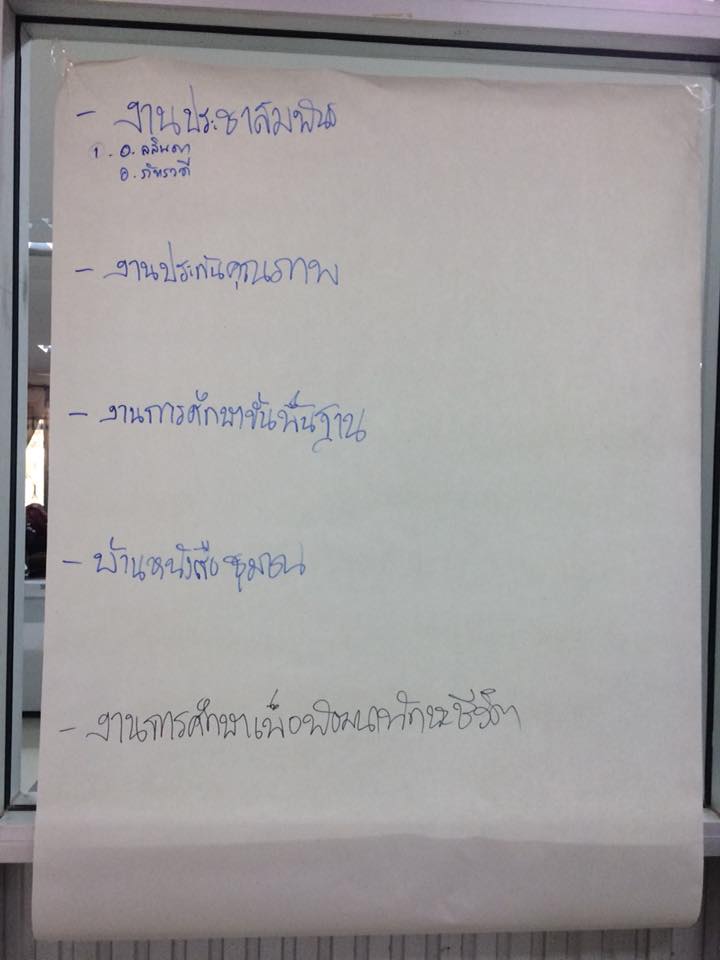 - งานประชาสัมพันธ์
1. อ. ลลินดา
อ. ภัทราวดี
- งานประกันคุณภาพ
- งานการศึกษาขั้นพื้นฐาน
- บ้านหนังสือชุมชน
- งานการศึกษาเพื่อพัฒนาทักษะชีวิต